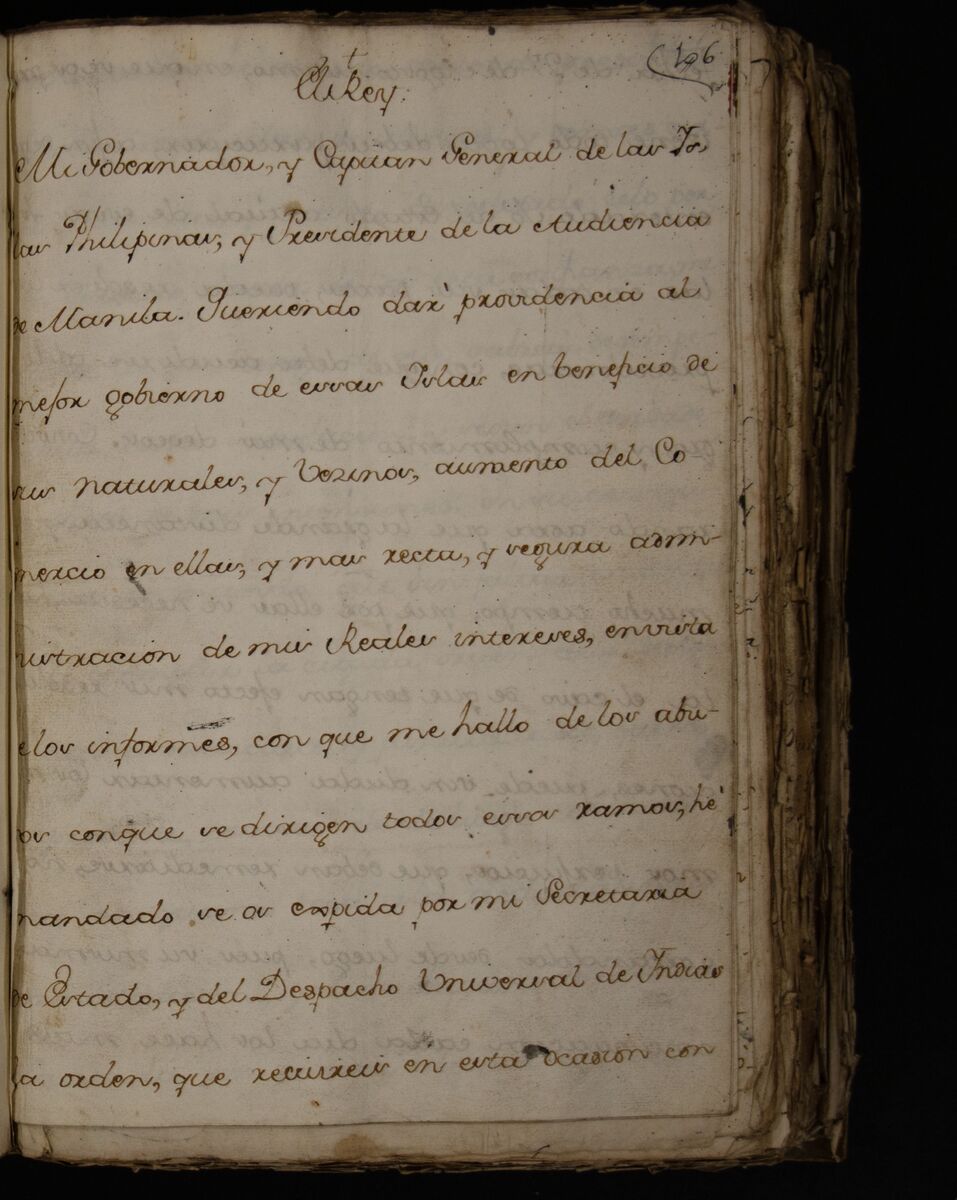 106
El Rey.
Mi Gobernador, y Capitan General de las Is
las Philipinas, y Presidente de la Audiencia
de Manila. Queriendo dar providencia al
mejor gobierno de essas Islas en beneficio de
sus naturales, y Vezinos, aumento del Co-
mercio en ellas, y mas recta, y segura admi-
nistracion de mis Reales intereses, en vista
de los informes, con que me hallo de los abu-
sos conque se dirigen todos essos ramos, hé
mandado se os expida por mi Secretaria
de Estado, y del Despacho Universal de Indias
la orden, que recivireis en esta ocasion con